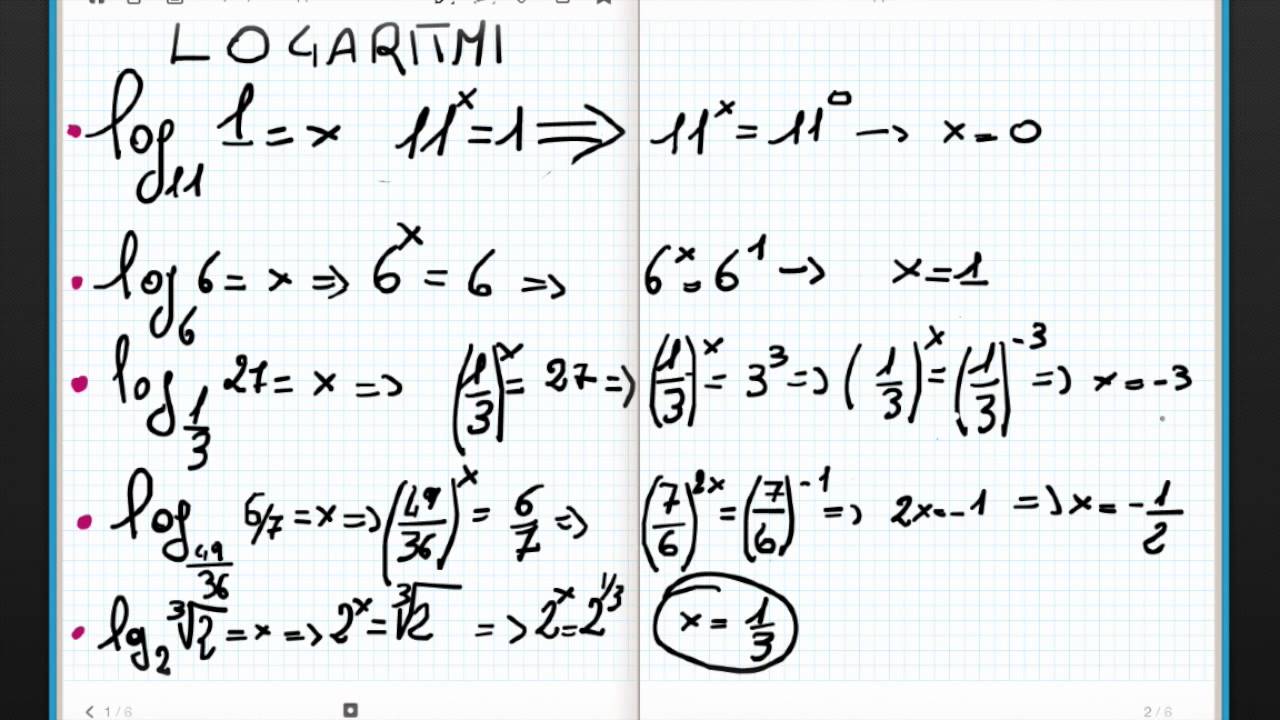 LOGARITMI
• log₁₁ 1 = x 11ˣ = 1 ⟹ 11ˣ = 11⁰ → x = 0
• log₆ 6 = x ⇒ 6ˣ = 6 ⇒ 6ˣ = 6¹ → x = 1
• log_(1/3) 27 = x ⇒ (1/3)ˣ = 27 ⇒ (1/3)ˣ = 3³ ⇒ (1/3)ˣ = (1/3)⁻³ ⇒ x = -3
• log_(49/36) 6/7 = x ⇒ (49/36)ˣ = 6/7 ⇒ (7/6)²ˣ = (7/6)⁻¹ ⇒ 2x = -1 ⇒ x = -1/2
• lg₂ ³√2 = x ⇒ 2ˣ = ³√2 ⇒ 2ˣ = 2^(1/3) x = 1/3
< 1 / 6
2 / 6